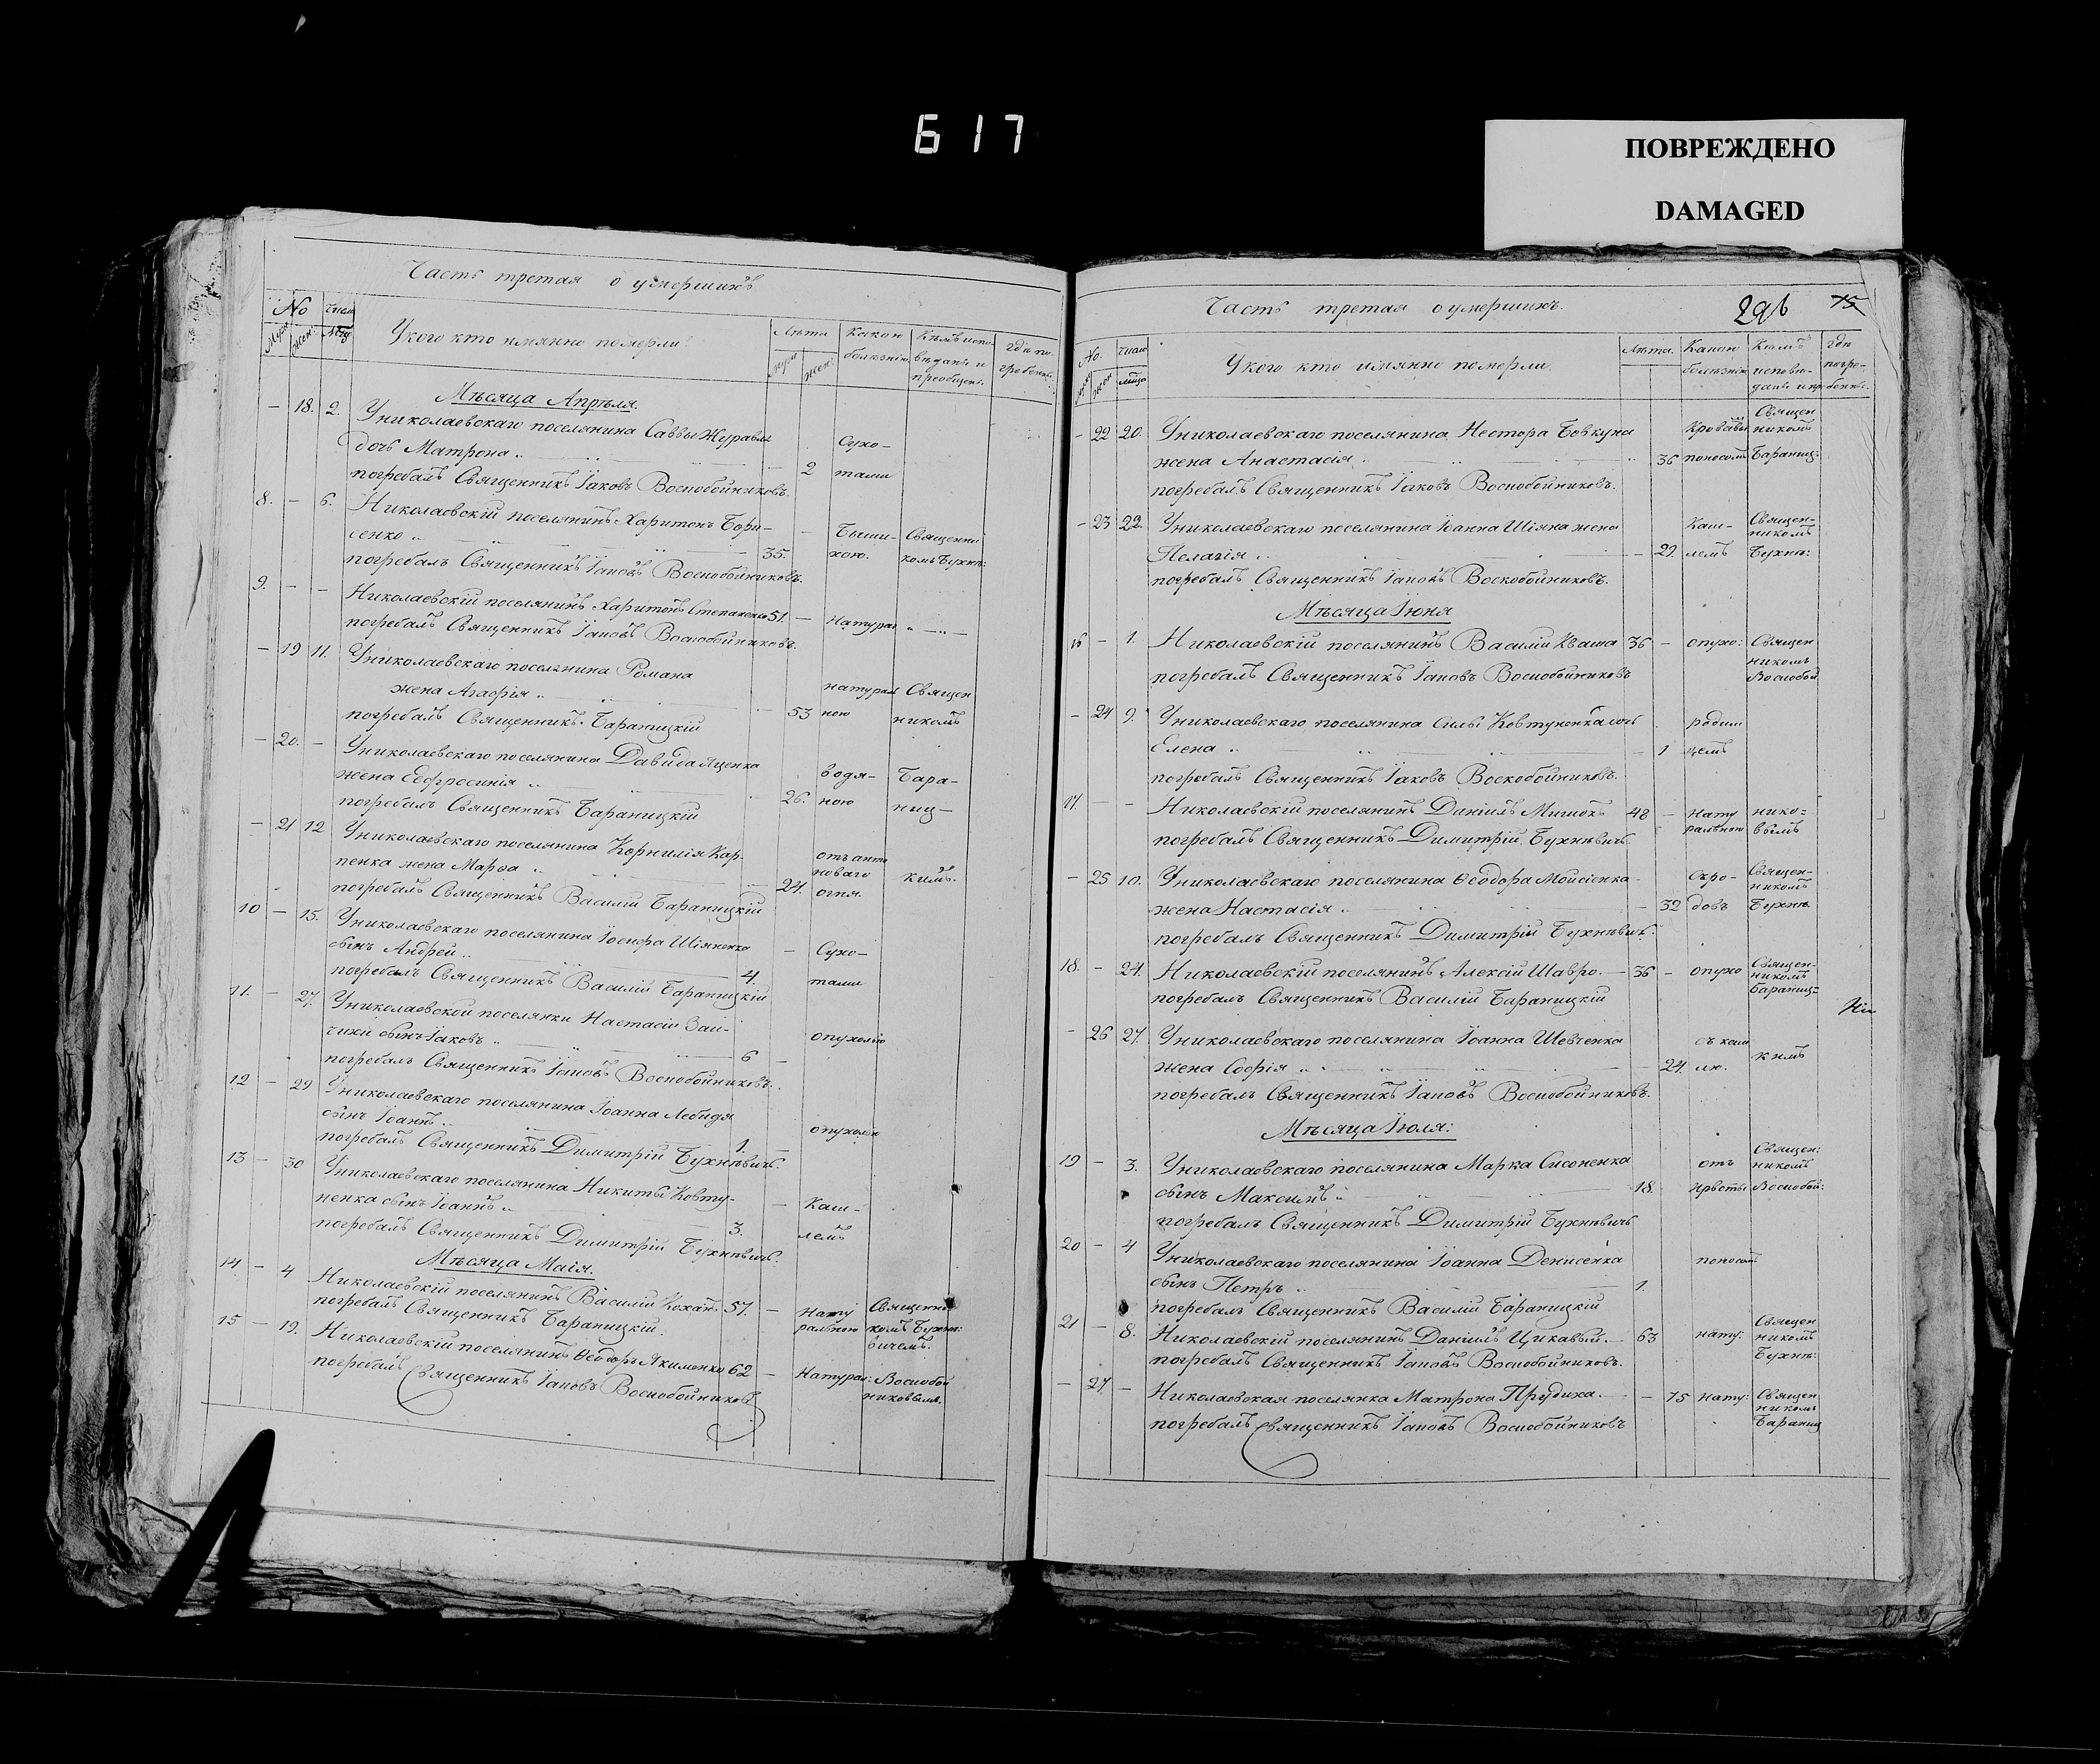 617
ПОВРЕЖДЕНО
DAMAGED
Часть третая о умершихъ
No числ.
Муж. Жен. мцъ
Укого кто имянно померли
Лѣта
муж. жен.
Какою болѣзнію
Кѣмъ исповѣданъ и преобщенъ
Гдѣ погребенъ
Мѣсяца Апрѣля.
— 18. 2. Униколаевскаго поселянина Саввы Журавля
дочь Матрона — 2 Сухотами
погребалъ Священникъ Іаковъ Воскобойниковъ.
8. — 6. Николаевскій поселянинъ Харитонъ Бори-
сенко 35. — Священникомъ Бухнѣ:
погребалъ Священникъ Іаковъ Воскобойниковъ.
9. — — Николаевскій поселянинъ Харитонъ Степаненко 51. — Натурал „ — „ —
погребалъ Священникъ Іаковъ Воскобойниковъ.
— 19 11. Униколаевскаго поселянина Романа
жена Агафія — 53 натуралною Священникомъ
погребалъ Священникъ Бараницкій
— 20. — Униколаевскаго поселянина Давида Яценка
жена Евфросинія 26. водяною Бараниц-
погребалъ Священникъ Бараницкій
— 21 12 Униколаевскаго поселянина Корнилія Кар-
пенка жена Марѳа — 24. отъ антоноваго огня. кимъ.
погребалъ Священникъ Василій Бараницкій
10 — 15. Униколаевскаго поселянина Іосифа Шіяненка
сынъ Андрей 4. — Сухотами
погребалъ Священникъ Василій Бараницкій
11. — 27. Униколаевской поселянки Настасіи Зай-
чихи сынъ Іаковъ 6 — опухолью
погребалъ Священникъ Іаковъ Воскобойниковъ.
12 — 29 Униколаевскаго поселянина Іоанна Лебидя
сынъ Іоаннъ 1. — опухолью
погребалъ Священникъ Димитрій Бухнѣвичъ.
13 — 30 Униколаевскаго поселянина Никиты Ковту-
ненка сынъ Іоаннъ 3. — Кашлемъ
погребалъ Священникъ Димитрій Бухнѣвичъ.
Мѣсяца Маія.
14 — 4 Николаевскій поселянинъ Василій Коханъ 57. — Натуральною Священникомъ Бухнѣвичемъ.
погребалъ Священникъ Бараницкій.
15 — 19. Николаевскій поселянинъ Ѳеодоръ Якименко 62 — Натурал: Воскобойниковымъ.
погребалъ Священникъ Іаковъ Воскобойниковъ
Часть третая оумершихъ.
296 75
No. числ.
муж жен мѣсца
Укого кто имянно померли
Лѣта.
Какою болѣзнію
Кѣмъ исповѣданъ и пр
Гдѣ погребенъ.
— 22 20. Униколаевскаго поселянина Нестора Бовкуна
жена Анастасія 36 Кровавы поносомъ Священникомъ Бараниц:
погребалъ Священникъ Іаковъ Воскобойниковъ.
— 23 22. Униколаевскаго поселянина Іоанна Шіяна жена
Пелагія — 29. Кашлемъ Священникомъ Бухнѣ:
погребалъ Священникъ Іаковъ Воскобойниковъ.
Мѣсяца Іюня
16 — 1. Николаевскій поселянинъ Василій Кваша 36 — опухо: Священникомъ Воскобой
погребалъ Священникъ Іаковъ Воскобойниковъ
— 24 9. Униколаевскаго поселянина Силы Ковтуненка дочь
Елена — 1 родимцемъ
погребалъ Священникъ Іаковъ Воскобойниковъ.
17. — Николаевскій поселянинъ Даніилъ Мишокъ 48 — Натуралъною никовымъ
погребалъ Священникъ Димитрій Бухнѣвичъ
— 25 10. Униколаевскаго поселянина Ѳеодора Мойсіенка
жена Настасія — 32 Священникомъ Бухнѣ
погребалъ Священникъ Димитрій Бухнѣвичъ.
18. — 24. Николаевскій поселянинъ Алексій Шавро. — 36 — опухо Священникомъ Бараниц-
погребалъ Священникъ Василій Бараницкій
— 26 27 Униколаевскаго поселянина Іоанна Шевченка
жена Софія — 24. кимъ
погребалъ Священникъ Іаковъ Воскобойниковъ.
Мѣсяца Іюля:
19 — 3. Униколаевскаго поселянина Марка Сисоненка
сынъ Максимъ 18. отъ Священ: никомъ Воскобой:
погребалъ Священникъ Димитрій Бухнѣвичъ
20 — 4 Униколаевскаго поселянина Іоанна Денисенка
сынъ Петръ 1. поносомъ
погребалъ Священникъ Василій Бараницкій
21 — 8. Николаевскій поселянинъ Даніилъ Цикавый. — 63 нату: Священникомъ Бухнѣ:
погребалъ Священникъ Іаковъ Воскобойниковъ.
— 27 — Николаевская поселянка Матрона Прудиха. — 75 нату: Священникомъ Бараниц
погребалъ Священникъ Іаковъ Воскобойниковъ